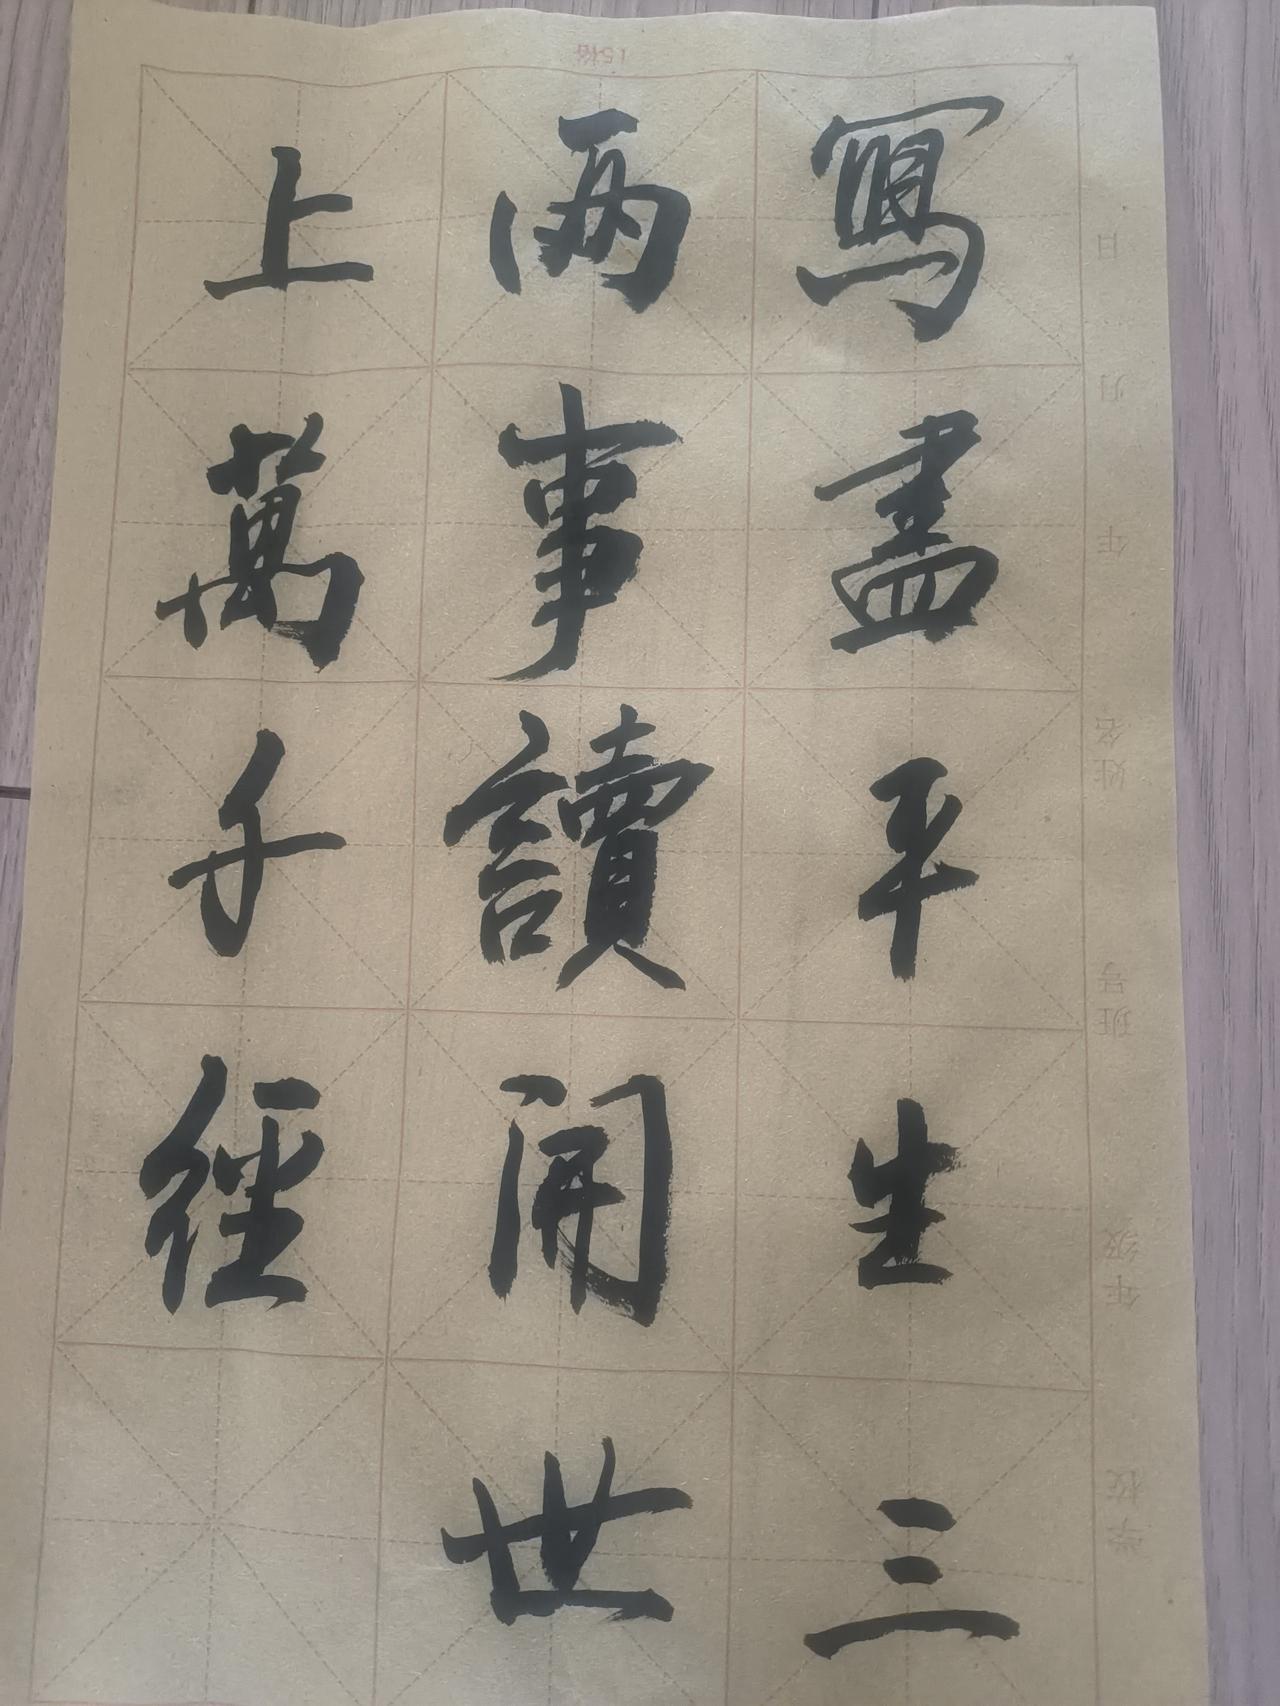 寫盡平生三
兩事讀開世
上萬千經
15格
學校
年级
班号
姓名
年
月
日